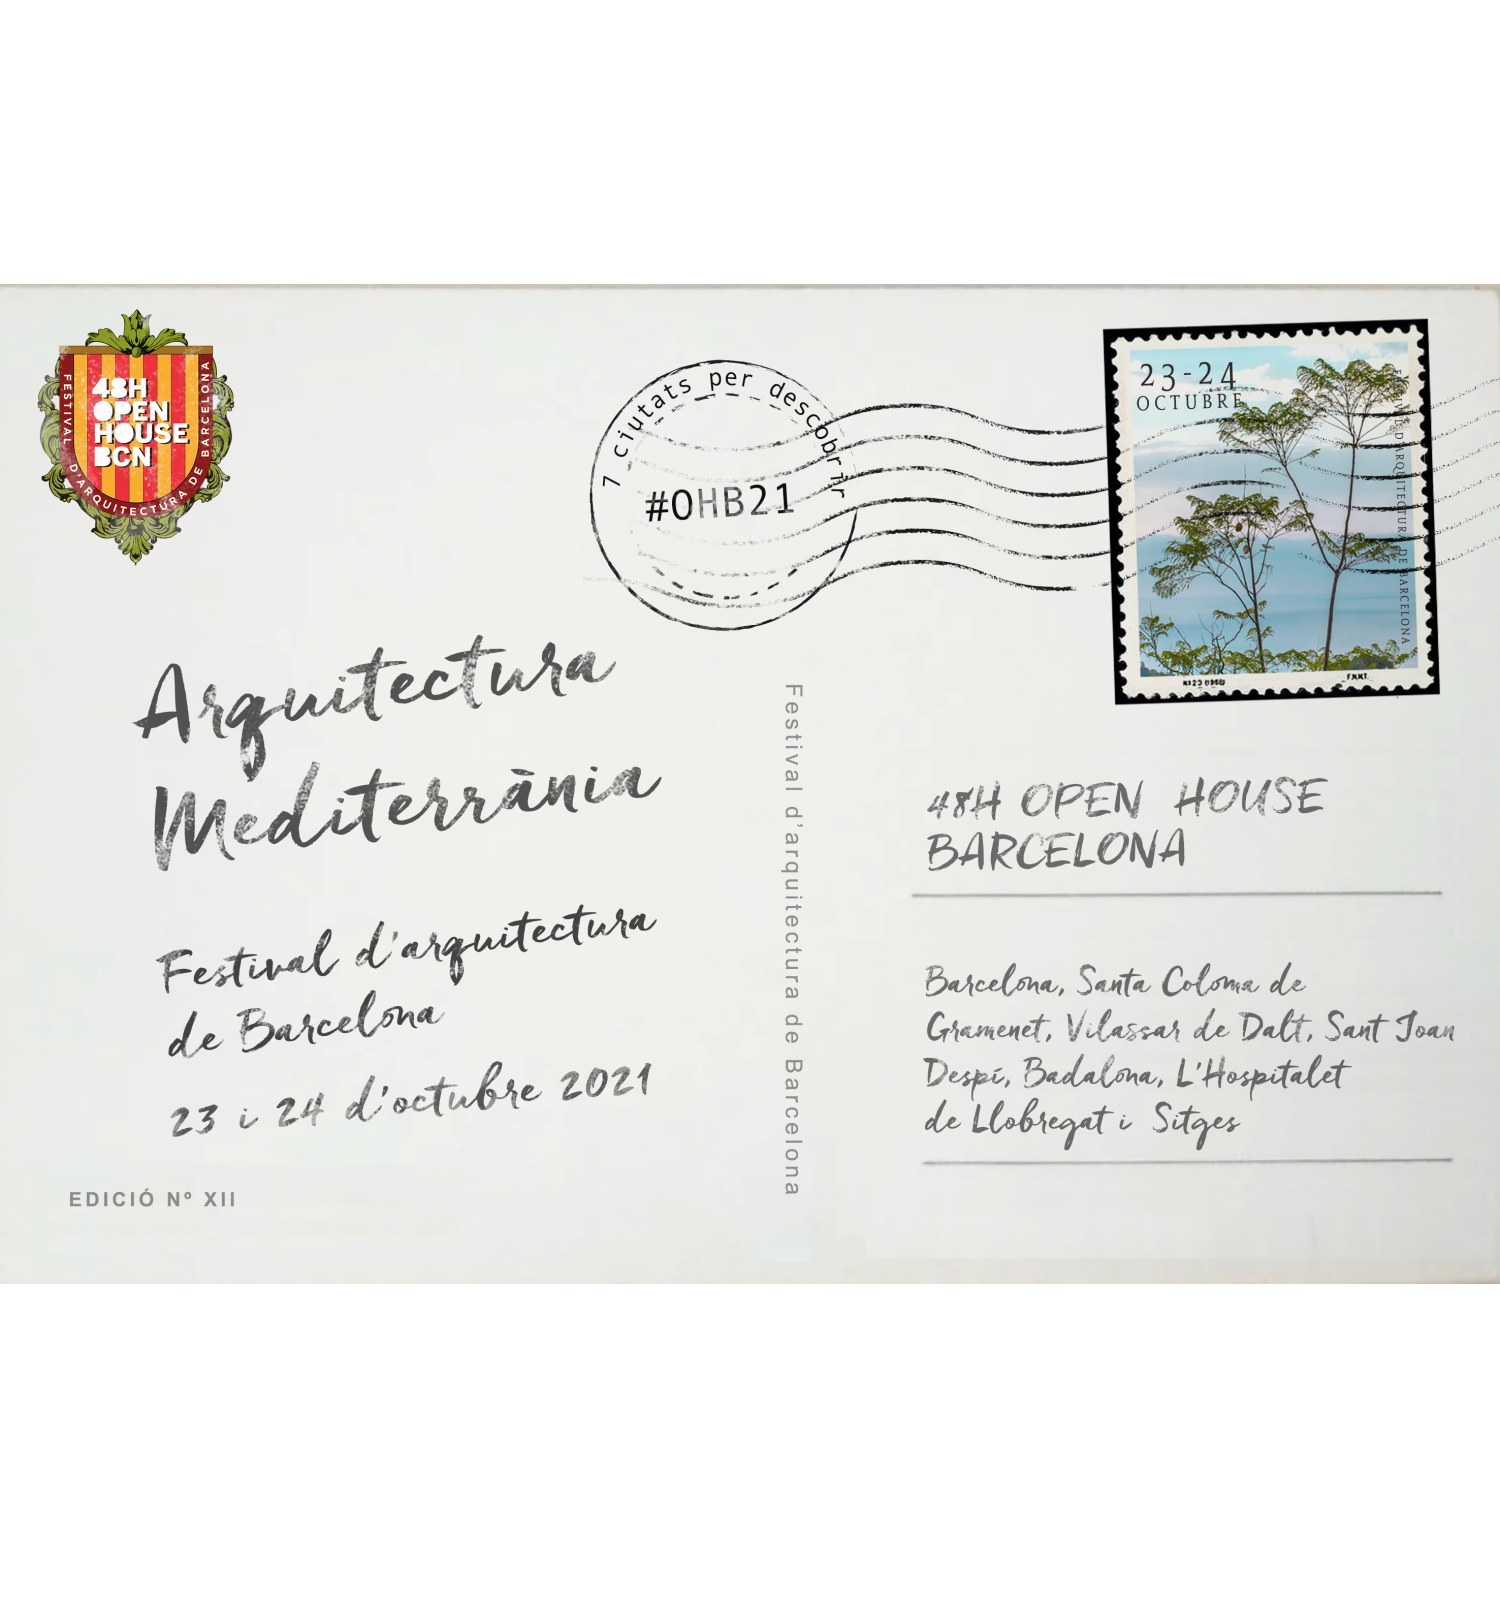 48H
OPEN
HOUSE
BCN
FESTIVAL D'ARQUITECTURA DE BARCELONA
7 ciutats per descobrir
#OHB21
23-24
OCTUBRE
D'ARQUITECTURA DE BARCELONA
F.N.M.T.
Arquitectura
Mediterrània
Festival d'arquitectura
de Barcelona
23 i 24 d'octubre 2021
EDICIÓ Nº XII
Festival d'arquitectura de Barcelona
48H OPEN HOUSE
BARCELONA
Barcelona, Santa Coloma de
Gramenet, Vilassar de Dalt, Sant Joan
Despí, Badalona, L'Hospitalet
de Llobregat i Sitges